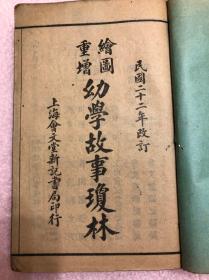 民國二十二年改訂
繪圖
重增
幼學故事瓊林
上海會文堂新記書局印行